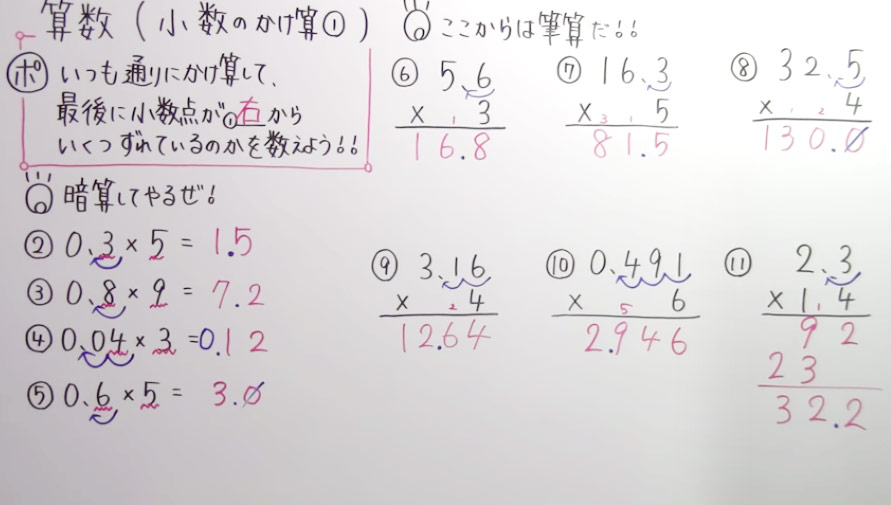 算数(小数のかけ算①)
ポ いつも通りにかけ算して、
最後に小数点が①右から
いくつずれているのかを数えよう!!
暗算してやるぜ!
② 0.3 × 5 = 1.5
③ 0.8 × 9 = 7.2
④ 0.04 × 3 = 0.12
⑤ 0.6 × 5 = 3.0
ここからは筆算だ!!
⑥ 5.6
× 1 3
16.8
⑦ 16.3
× 3 1 5
81.5
⑧ 32.5
× 1 2 4
130.0
⑨ 3.16
× 2 4
12.64
⑩ 0.491
× 5 6
2.946
⑪ 2.3
× 1.1 4
9 2
2 3
32.2